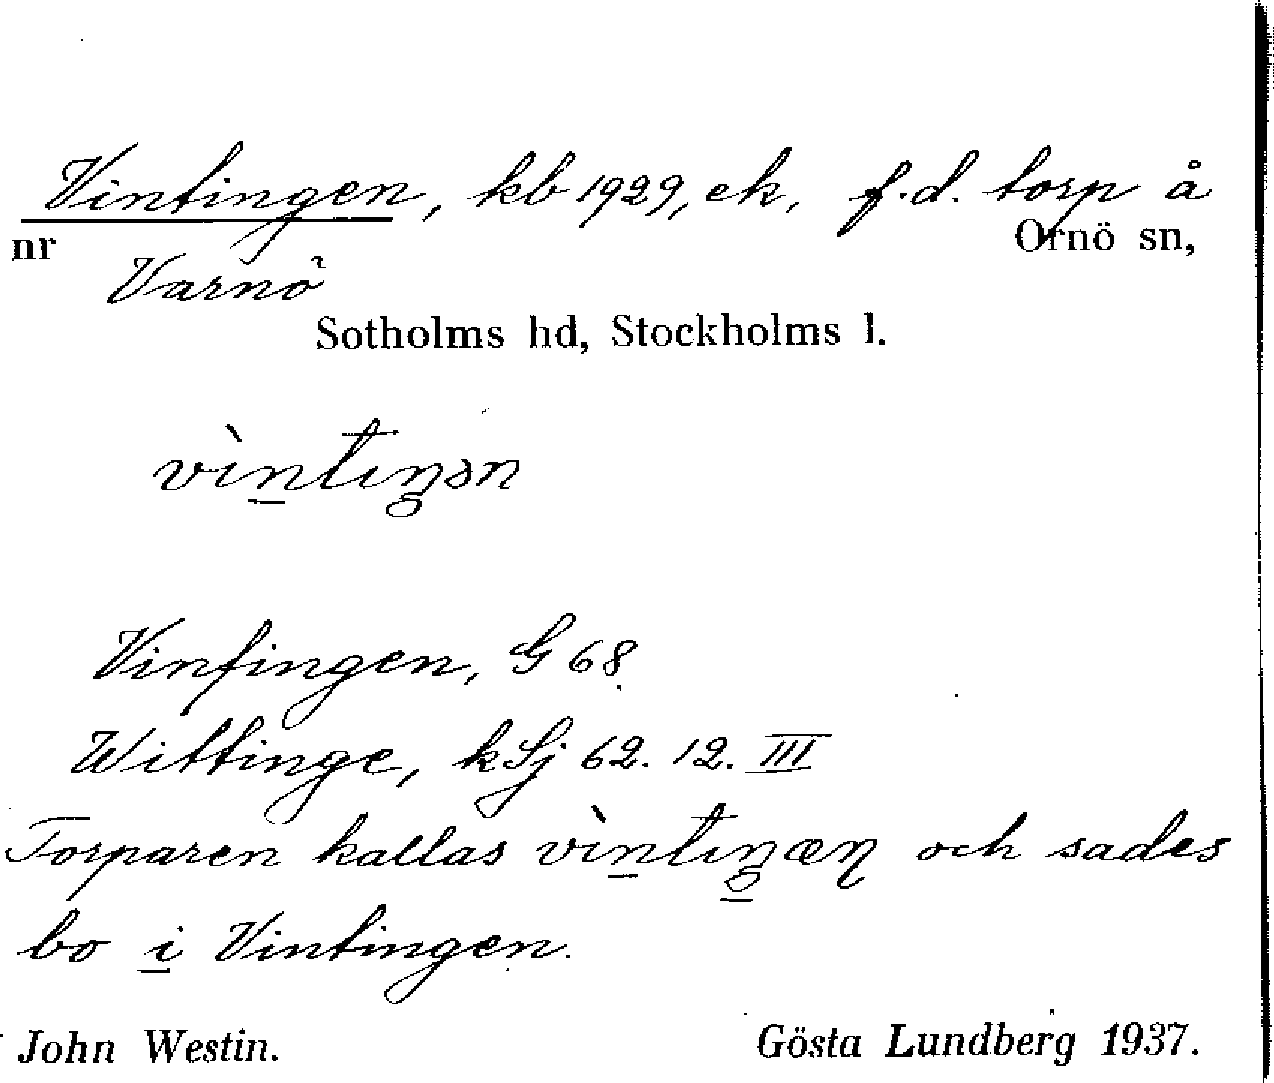 Vintingen, kb 1929, ek, f.d. torp å
nr Ornö sn,
Varnö
Sotholms hd, Stockholms l.
vìntıŋən
Vinfingen, G 68
Wittinge, kSj 62. 12. III
Torparen kallas vìntıŋæɳ och sades
bo i Vintingen.
John Westin. Gösta Lundberg 1937.